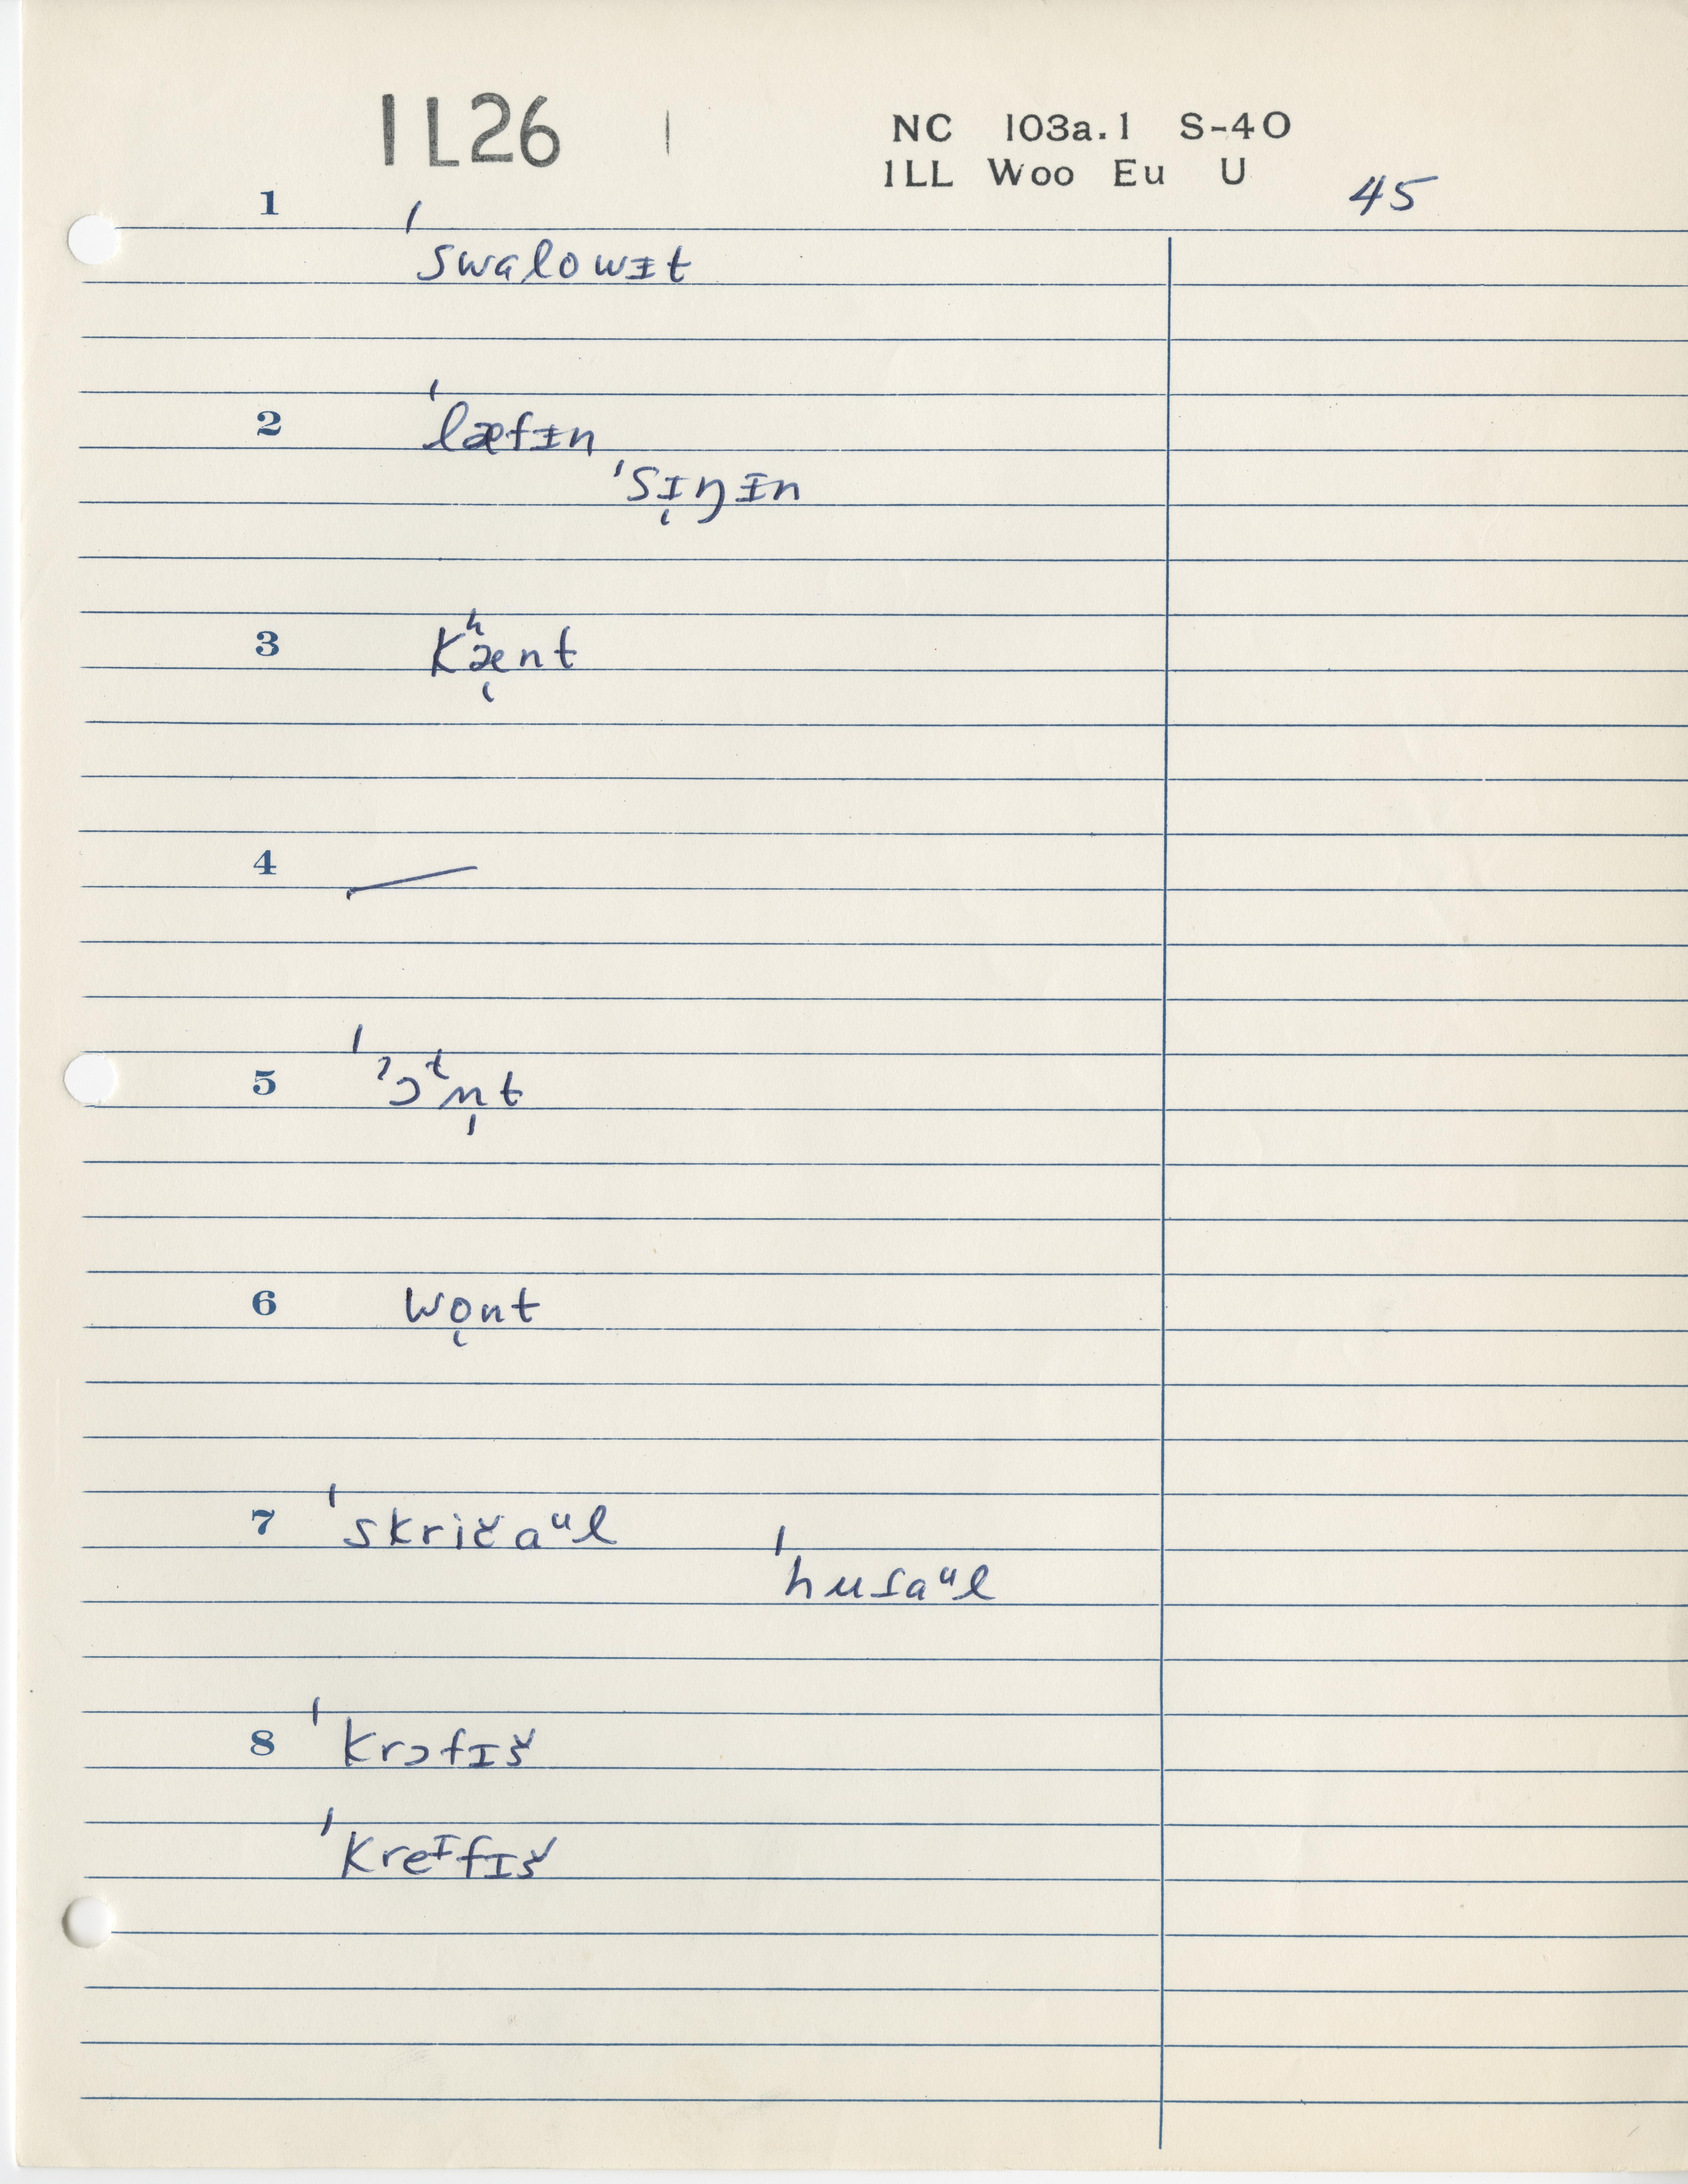 IL26 | NC 103a.1 S-40
ILL Woo Eu U
45
1 ˈswalowᵻt
2 ˈlæfᵻn
ˈsɪ̜ŋᵻn
3 kʰæ̜nt
4 —
5 ˈˀɔᵗn̩t
6 wo̜nt
7 ˈskričaᵘl
ˈhuʃaᵘl
8 ˈkrɔfɪš
ˈkreᶦfɪš